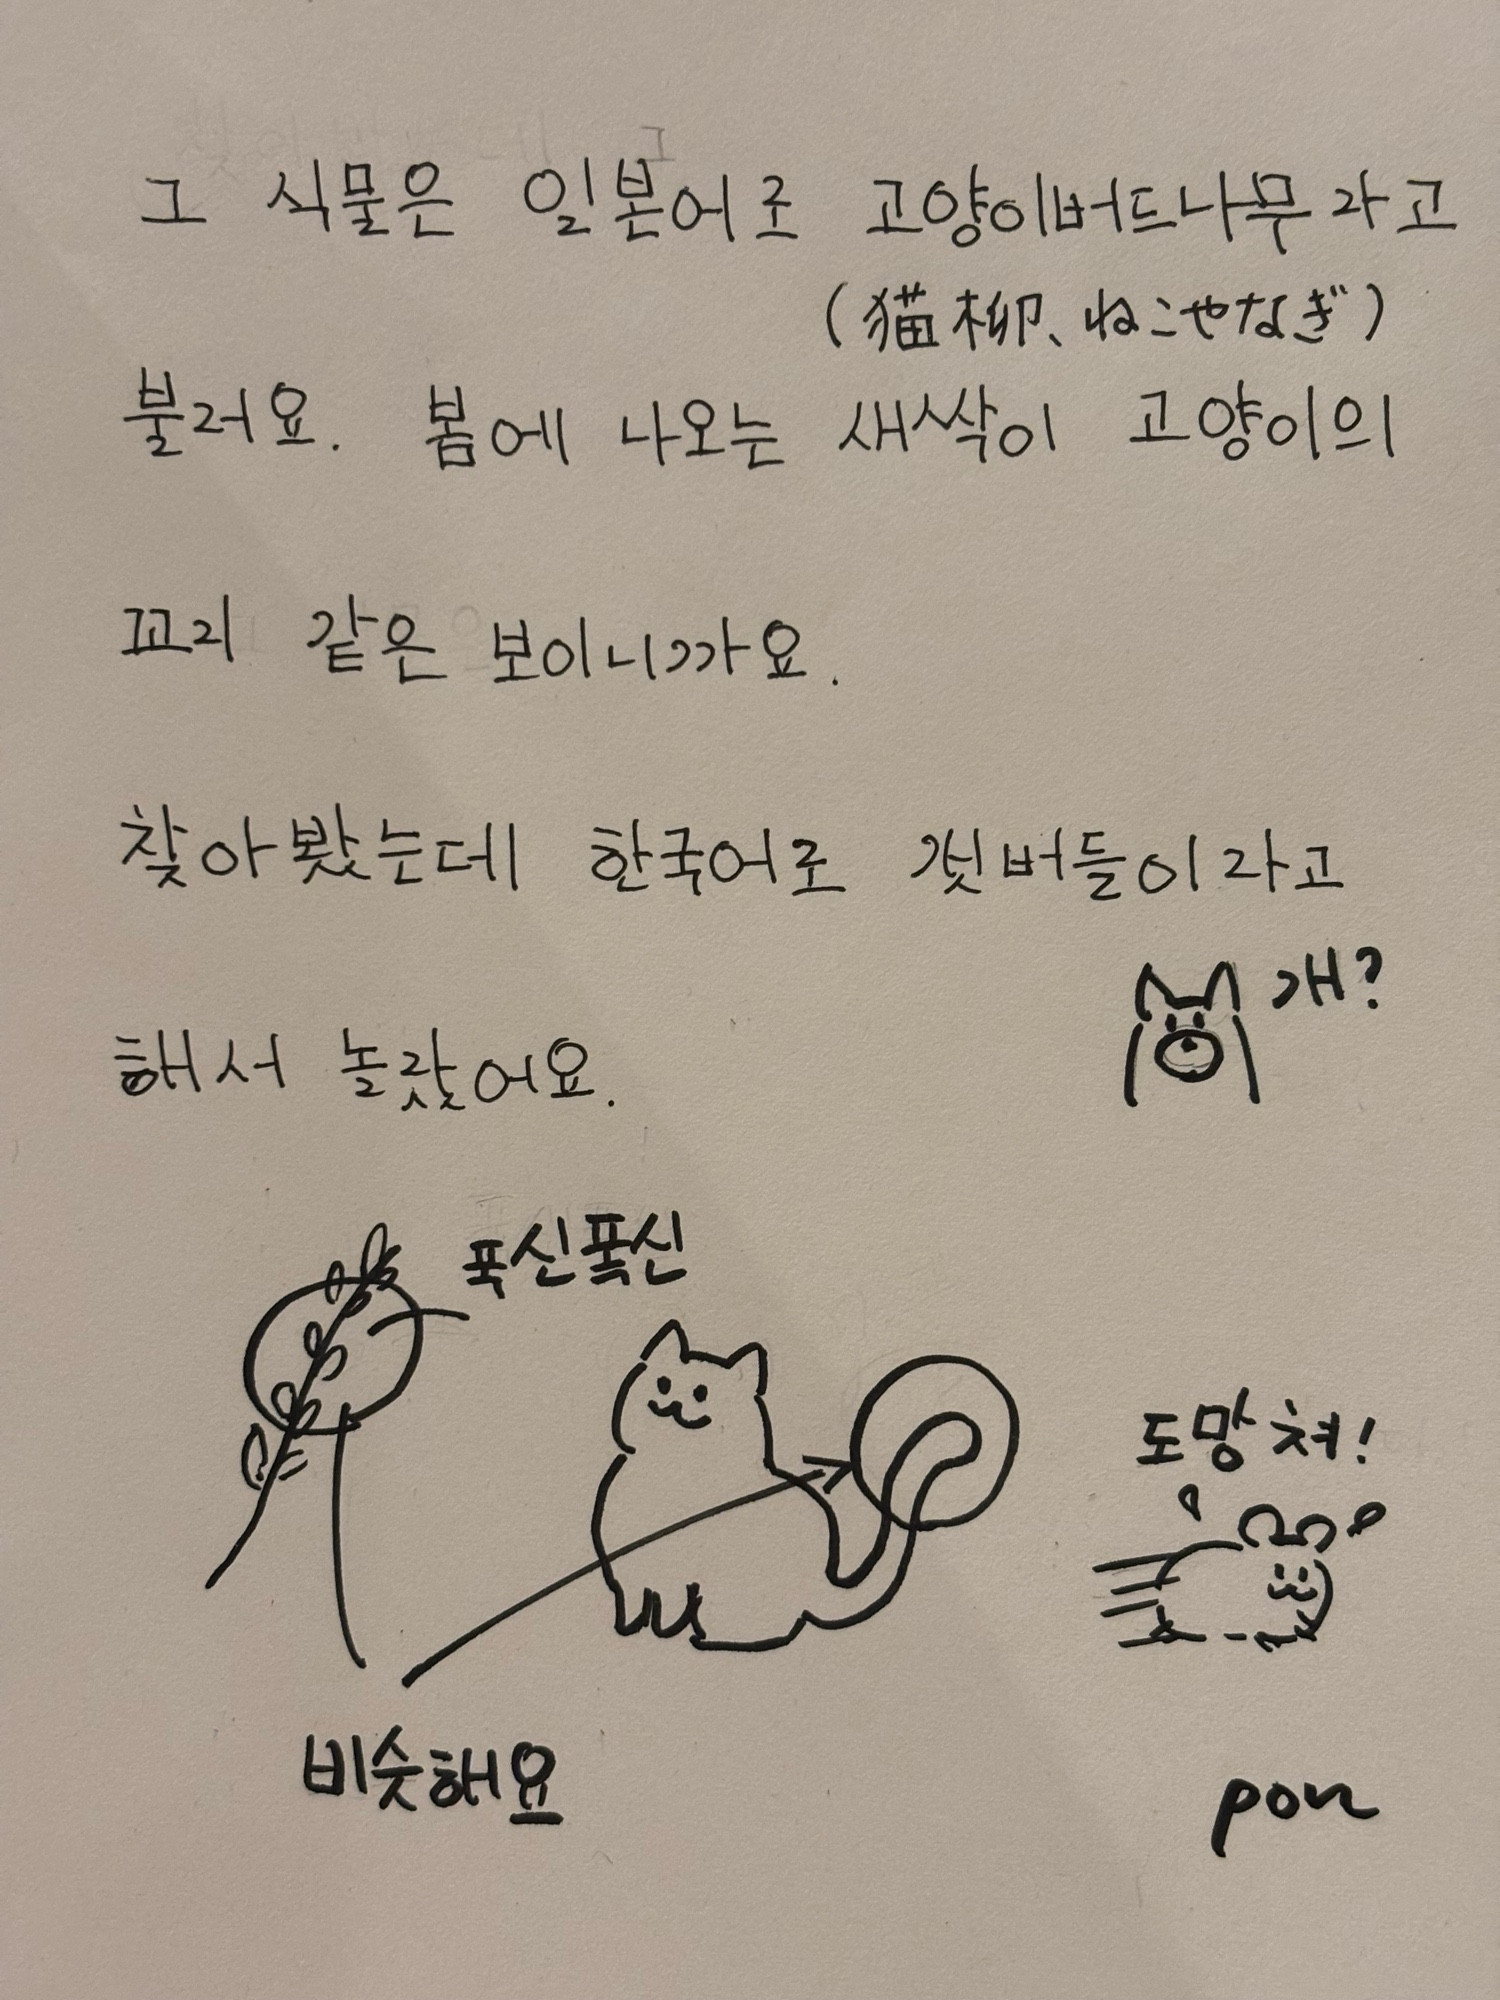 그 식물은 일본어로 고양이버드나무라고
(猫柳、ねこやなぎ)
불러요. 봄에 나오는 새싹이 고양이의
꼬리 같은 보이니까요.
찾아봤는데 한국어로 갯버들이라고
개?
해서 놀랐어요.
폭신폭신
도망쳐!
비슷해요
pon